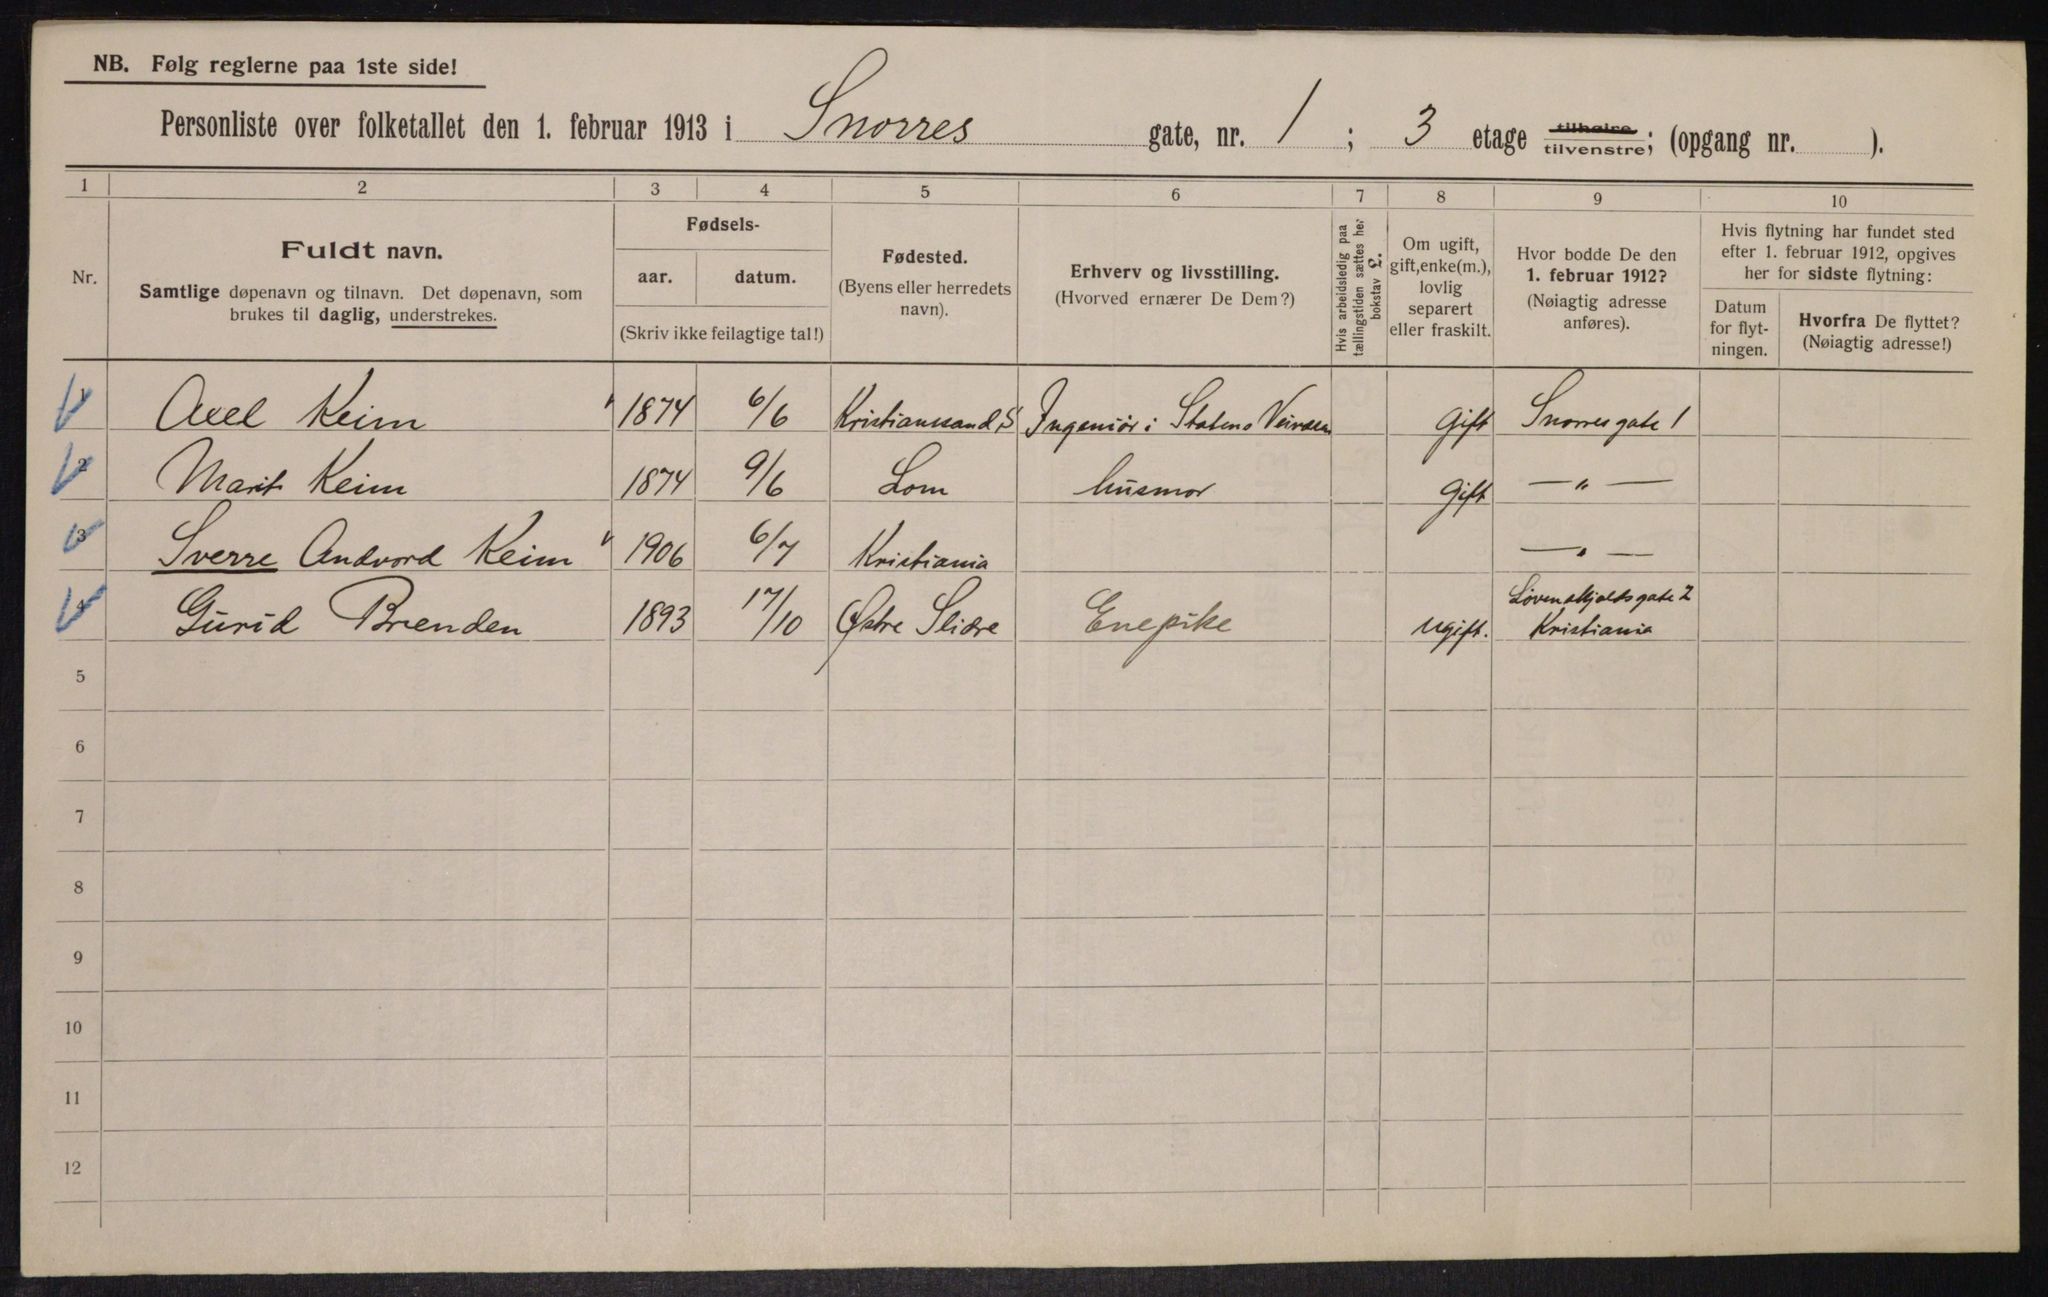 NB. Følg reglerne paa 1ste side!
Personliste over folketallet den 1. februar 1913 i Snorres gate, nr. 1 ; 3 etage tilhøire tilvenstre; (opgang nr. ).
1 2 3 4 5 6 7 8 9 10
Nr.
Fuldt navn.
Samtlige døpenavn og tilnavn. Det døpenavn, som
brukes til daglig, understrekes.
Fødsels-
aar. datum.
(Skriv ikke feilagtige tal!)
Fødested.
(Byens eller herredets
navn).
Erhverv og livsstilling.
(Hvorved ernærer De Dem?)
Hvis arbeidsledig paa
tællingstiden sættes her
bokstav L.
Om ugift,
gift, enke(m.),
lovlig
separert
eller fraskilt.
Hvor bodde De den
1. februar 1912?
(Nøiagtig adresse
anføres).
Hvis flytning har fundet sted
efter 1. februar 1912, opgives
her for sidste flytning:
Datum
for flyt-
ningen.
Hvorfra De flyttet?
(Nøiagtig adresse!)
1 Axel Keim 1874 6/6 Kristianssand S Ingeniør i Statens Veivæsen Gift Snorresgate 1
2 Marit Keim 1874 9/6 Lom husmor Gift — " —
3 Sverre Andvord Keim 1906 6/7 Kristiania — " —
4 Gurid Brenden 1893 17/10 Østre Slidre Enepike Ugift. Løvenskjoldsgate 2
Kristiania
5
6
7
8
9
10
11
12